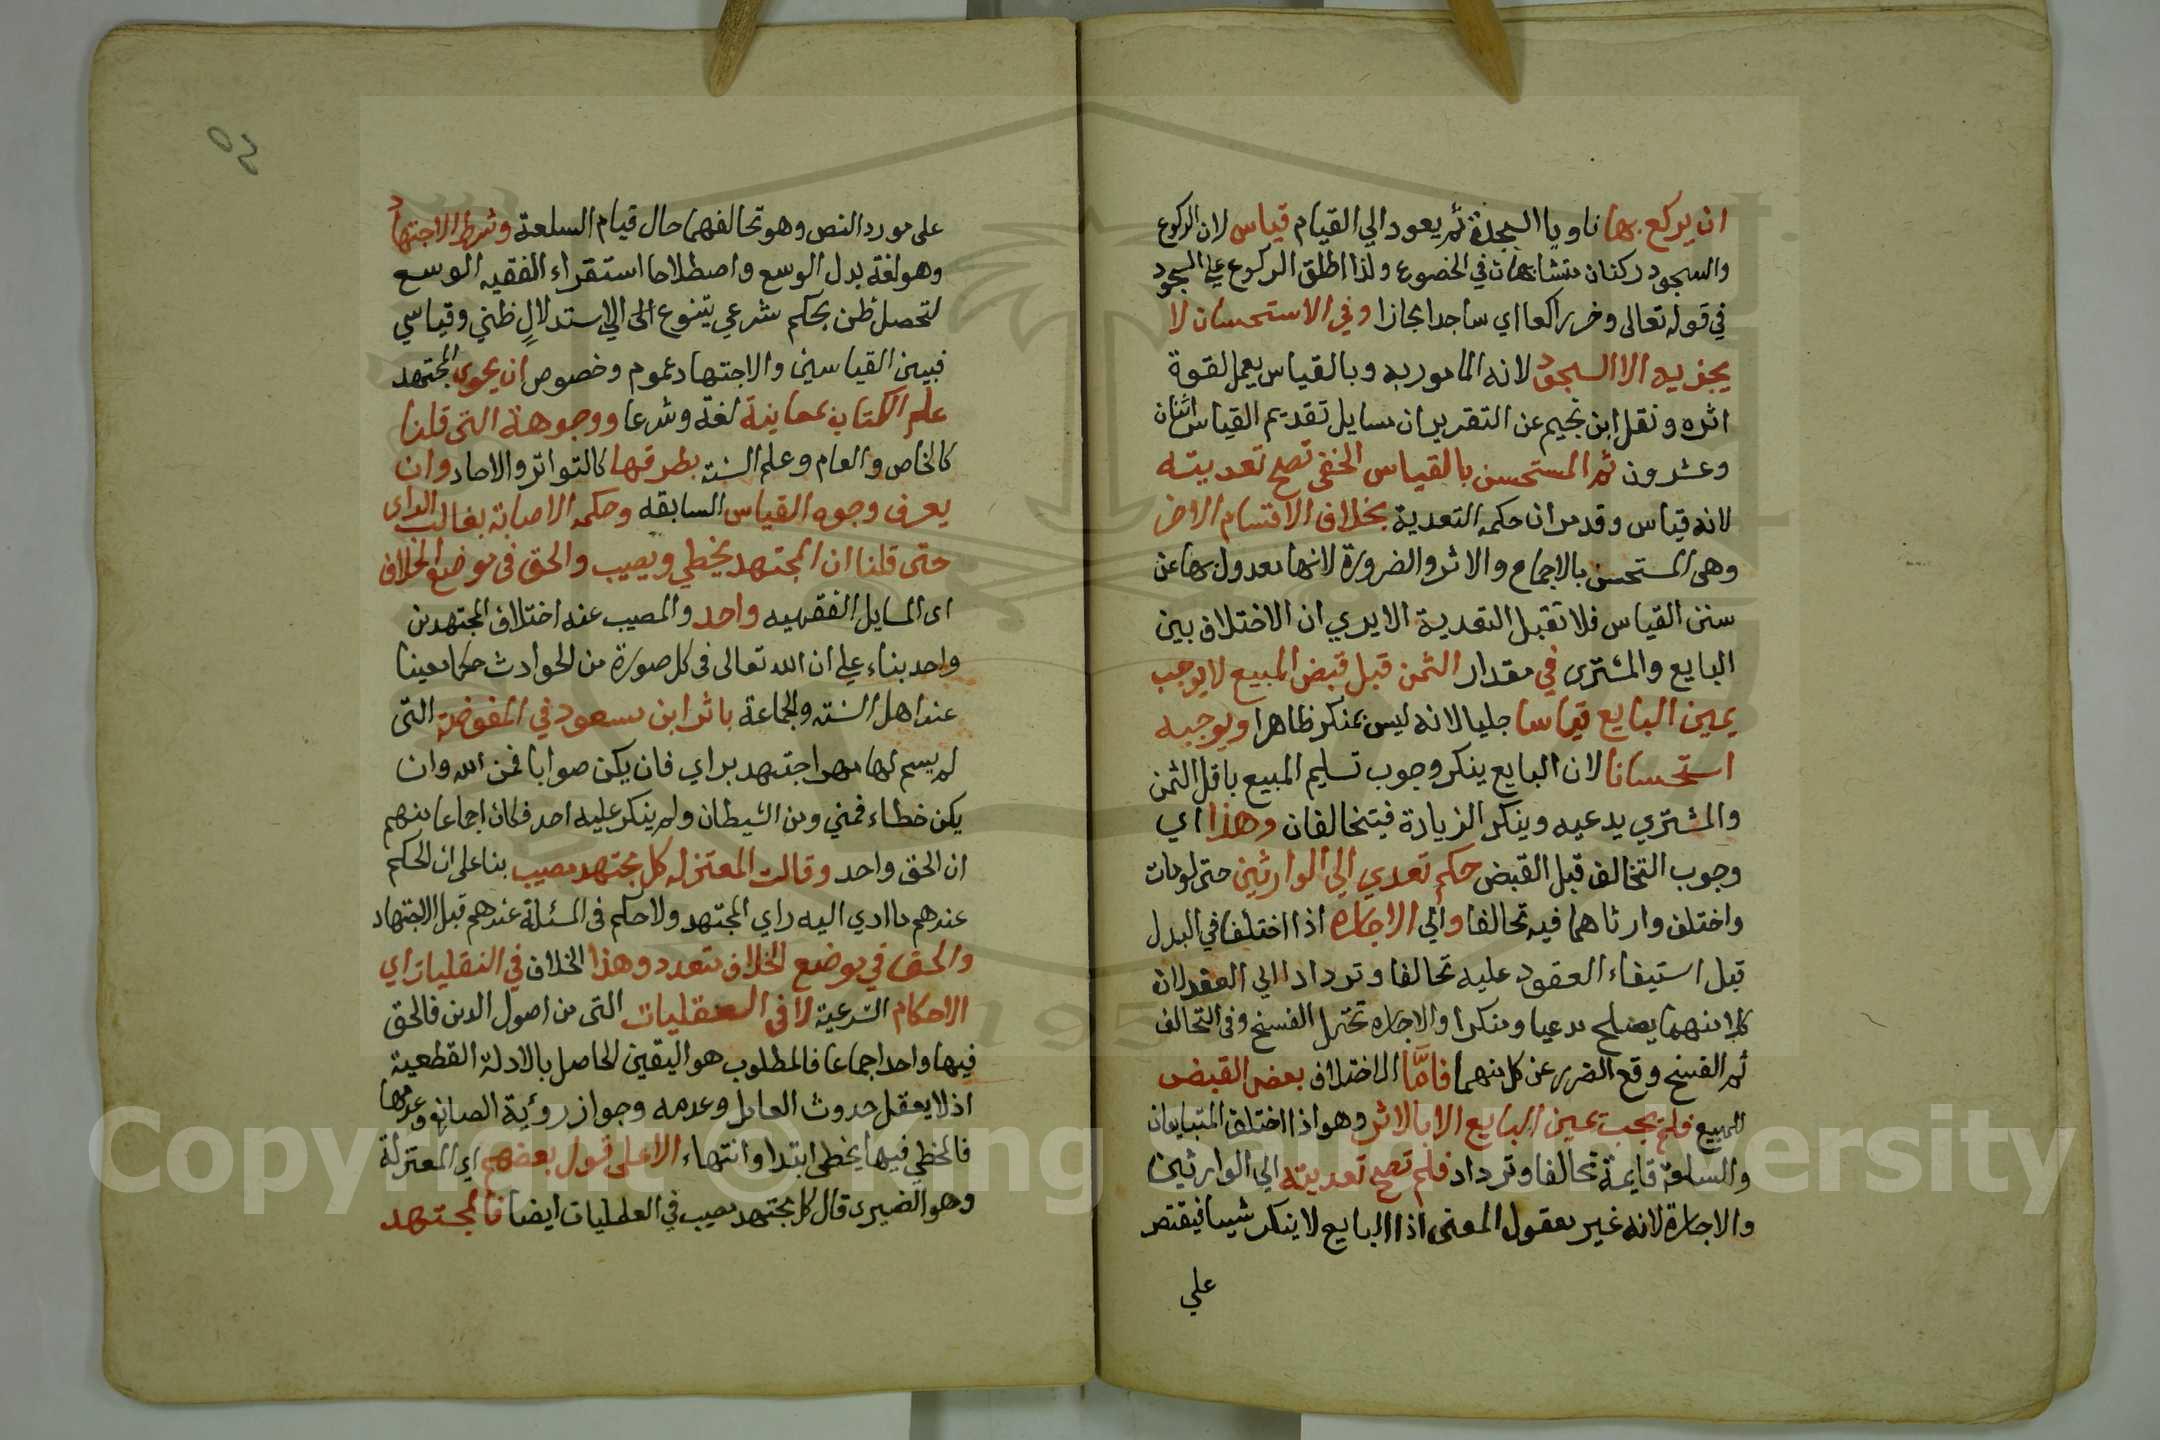 ان يركع بها ناويا السجدة ثم يعود الي القيام قياس لان الركوع
والسجود ركنان متشابهان في الخضوع ولذا اطلق الركوع علي السجود
في قوله تعالى وخر راكعا اي ساجدا مجازا وفي الاستحسان لا
يجزيه الا السجود لانه المامور به وبالقياس يعمل لقوة
اثره ونقل ابن نجيم عن التقرير ان مسايل تقديم القياس اثنان
وعشرون ثم المستحسن بالقياس الخفى تصح تعديته
لانه قياس وقد مر ان حكمه التعدية بخلاف الاقسام الاخر
وهى المستحسن بالاجماع والاثر والضرورة لانها معدول بها عن
سنن القياس فلا تقبل التعدية الا يري ان الاختلاف بين
البايع والمشترى في مقدار الثمن قبل قبض المبيع لا يوجب
يمين البايع قياسا جليا لانه ليس بمنكر ظاهرا ويوجبه
استحسانا لان البايع ينكر وجوب تسليم المبيع باقل الثمن
والمشتري يدعيه وينكر الزيادة فيتحالفان وهذا اي
وجوب التحالف قبل القبض حكم تعدي الي الوارثين حتى لو مات
واختلف وارثاهما فيه تحالفا والي الاجارة اذا اختلفا في البدل
قبل استيفاء العقود عليه تحالفا وترداد الي العقد لان
كلا منهما يصلح مدعيا ومنكرا والاجارة تحتمل الفسخ وفى التحالف
ثم الفسخ وقع الضرر عن كل منهما فامَّا الاختلاف بعض القبض
للمبيع فلم يجب يمين البايع الا بالاثر وهو اذا اختلف المتبايعان
والسلعة قايمة تحالفا وترداد فلم تصح تعديته الي الوارثين
والاجارة لانه غير معقول المعنى اذا البايع لا ينكر شيىا فيقتصر
علي
٥٢
على مورد النص وهو تحالفهما حال قيام السلعة وشرط الاجتهاد
وهو لغة بدل الوسع واصطلاحا استقراء الفقيه الوسع
لتحصل ظن بحكم شرعي يتنوع الى الي استدلالٍ ظني وقياسي
فبين القياسين والاجتهاد عموم وخصوص ان يحوى المجتهد
علم الكتاب بمعانية لغة وشرعا ووجوهة التى قلنا
كالخاص والعام وعلم السنة بطرقها كالتواتر والاحاد وان
يعرف وجوه القياس السابقه وحكمه الاصابة بغالب الراى
حتى قلنا ان المجتهد يخطي ويصيب والحق فى موضع الخلاف
اى المسايل الفقهيه واحد والمصيب عند اختلاف المجتهدين
واحد بناء علي ان الله تعالى فى كل صورة من الحوادث حكما معينا
عند اهل السنة والجماعة باثر ابن مسعود في المفوضة التى
لم يسم لها مهر اجتهد براي فان يكن صوابا فمن الله وان
يكن خطاء فمني ومن الشيطان ولم ينكر عليه احد فكان اجماعا منهم
ان الحق واحد وقالت المعتزله كل مجتهد مصيب بنا على ان الحكم
عندهم ما ادي اليه راي المجتهد ولا حكم فى المسئلة عندهم قبل الاجتهاد
والحق في موضع الخلاف متعدد وهذا الخلاف في النقليات اي
الاحكام الشرعية لا فى العقليات التى من اصول الدين فالحق
فيها واحد اجماعا فالمطلوب هو اليقين الحاصل بالادلة القطعية
اذ لا يعقل حدوث العالم وعدمه وجواز رؤية الصانع وعدمها
فالمخطي فيها يخطى ابتدا وانتهاء الا على قول بعضهم اي المعتزلة
وهو الضيرى قال كل مجتهد مصيب في العلمليات ايضا فالمجتهد
Copyright © King Saud University
1957